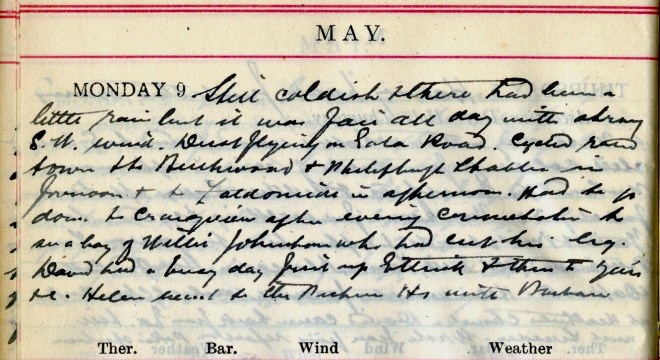 MAY.
MONDAY 9 Still coldish & there had been a
little rain but it was fair all day with strong
S.W. wind. Dust flying on Road. Cycled round
town to Birchwood & Philiphaugh in
forenoon & to in afternoon. Had to go
down to after evening consultation to
see a boy of Willie Johnston who had cut his leg.
David had a busy day first up Ettrick & then to
Helen went to the with
Ther. Bar. Wind Weather